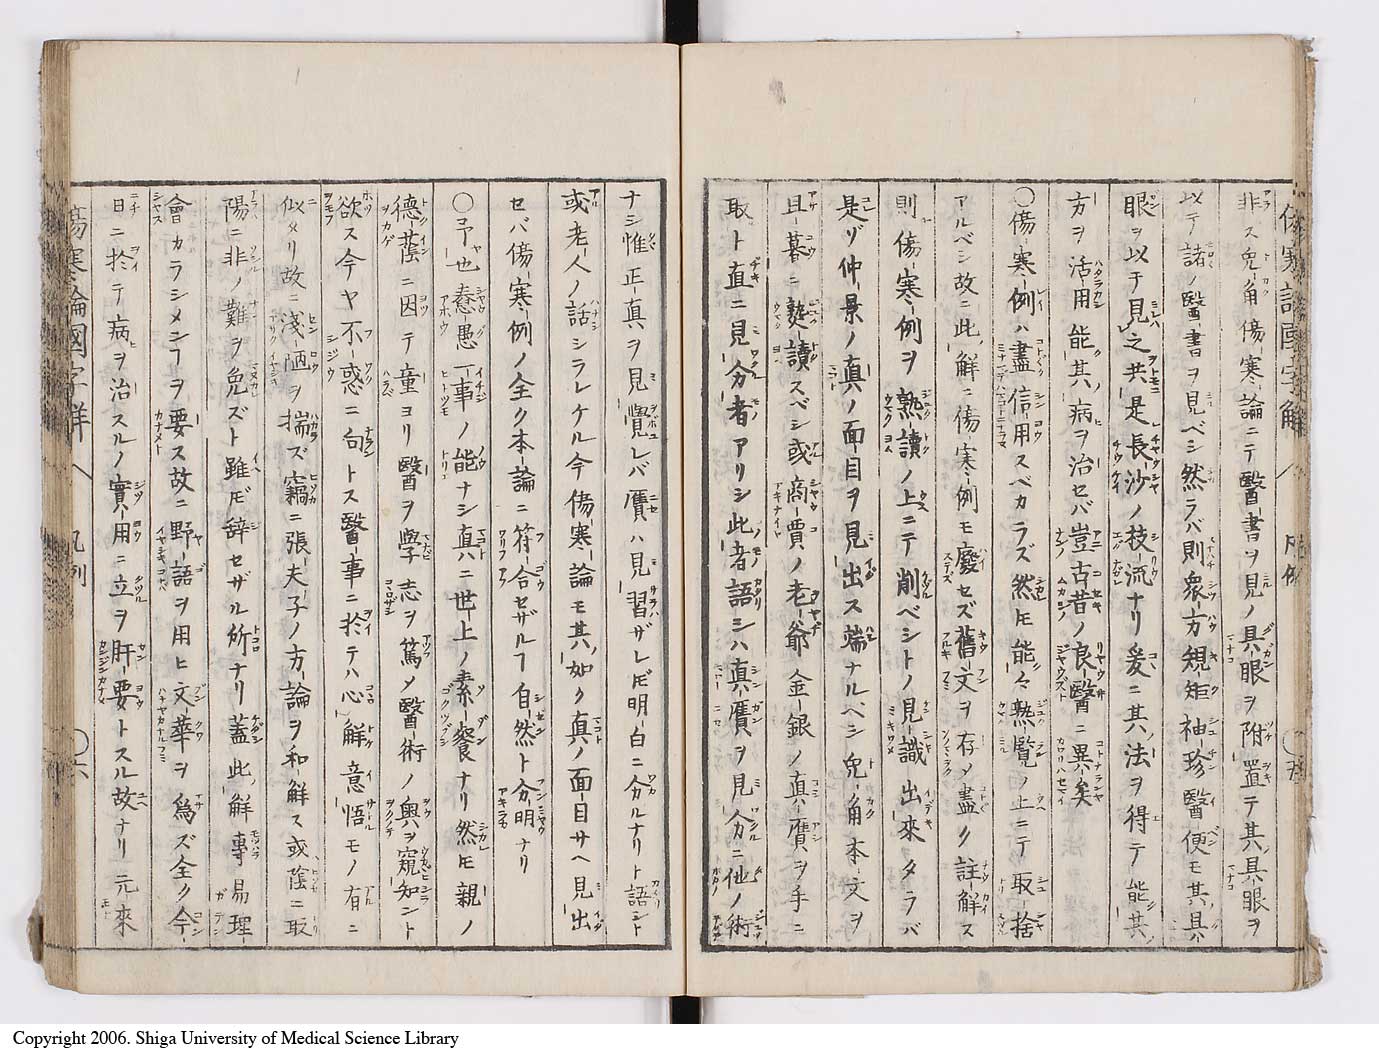 傷寒論國字解 凡例 ○五
非ス兎角傷寒論ニテ醫書ヲ見ノ具眼ヲ附置テ其具眼ヲ
以テ諸ノ醫書ヲ見ベシ然ラバ則衆方規矩袖珍醫便モ其具
眼ヲ以テ見之共ニ是長沙ノ技流ナリ爰ニ其法ヲ得テ能其
方ヲ活用能其病ヲ治セバ豈古昔ノ良醫ニ異矣
○傷寒例ハ盡信用スベカラズ然𪜈能々熟覽ノ上ニテ取捨
アルベシ故ニ此解ニ傷寒例モ廢セズ舊文ヲ存メ盡ク註解ス
則傷寒例ヲ熟讀ノ上ニテ削ベシトノ見識出來タラバ
是ゾ仲景ノ真ノ面目ヲ見出ス端ナルベシ兎角本文ヲ
且暮ニ熟讀スベシ或商賈ノ老爺金銀ノ真贋ヲ手ニ
取ト直ニ見分者アリシ此者語シハ真贋ヲ見分ニ他ノ術
ナシ惟正真ヲ見覺レバ贋ハ見習ザレ𪜈明白ニ分ルナリト語シト
或老人ノ話シラレケル今傷寒論モ其如ク真ノ面目サヘ見出
セバ傷寒例ノ全ク本論ニ符合セザルヿ自然ト分明ナリ
○予也惷愚一事ノ能ナシ真ニ世上ノ素餐ナリ然𪜈親ノ
德蔭ニ因テ童ヨリ醫ヲ學志ヲ篤メ醫術ノ奥ヲ窺知ント
欲ス今ヤ不惑ニ向トス醫事ニ於テハ心解意悟モノ有ニ
似タリ故ニ淺陋ヲ揣ズ竊ニ張夫子ノ方論ヲ和解ス或陰ニ取
陽ニ非ノ難ヲ免ズト雖𪜈辞セザル所ナリ蓋此解專易理
會カラシメンヿヲ要ス故ニ野語ヲ用ヒ文華ヲ為ズ全ク今
日ニ於テ病ヲ治スルノ實用ニ立ヲ肝要トスル故ナリ元來
傷寒論國字解 凡例 ○六
Copyright 2006. Shiga University of Medical Science Library